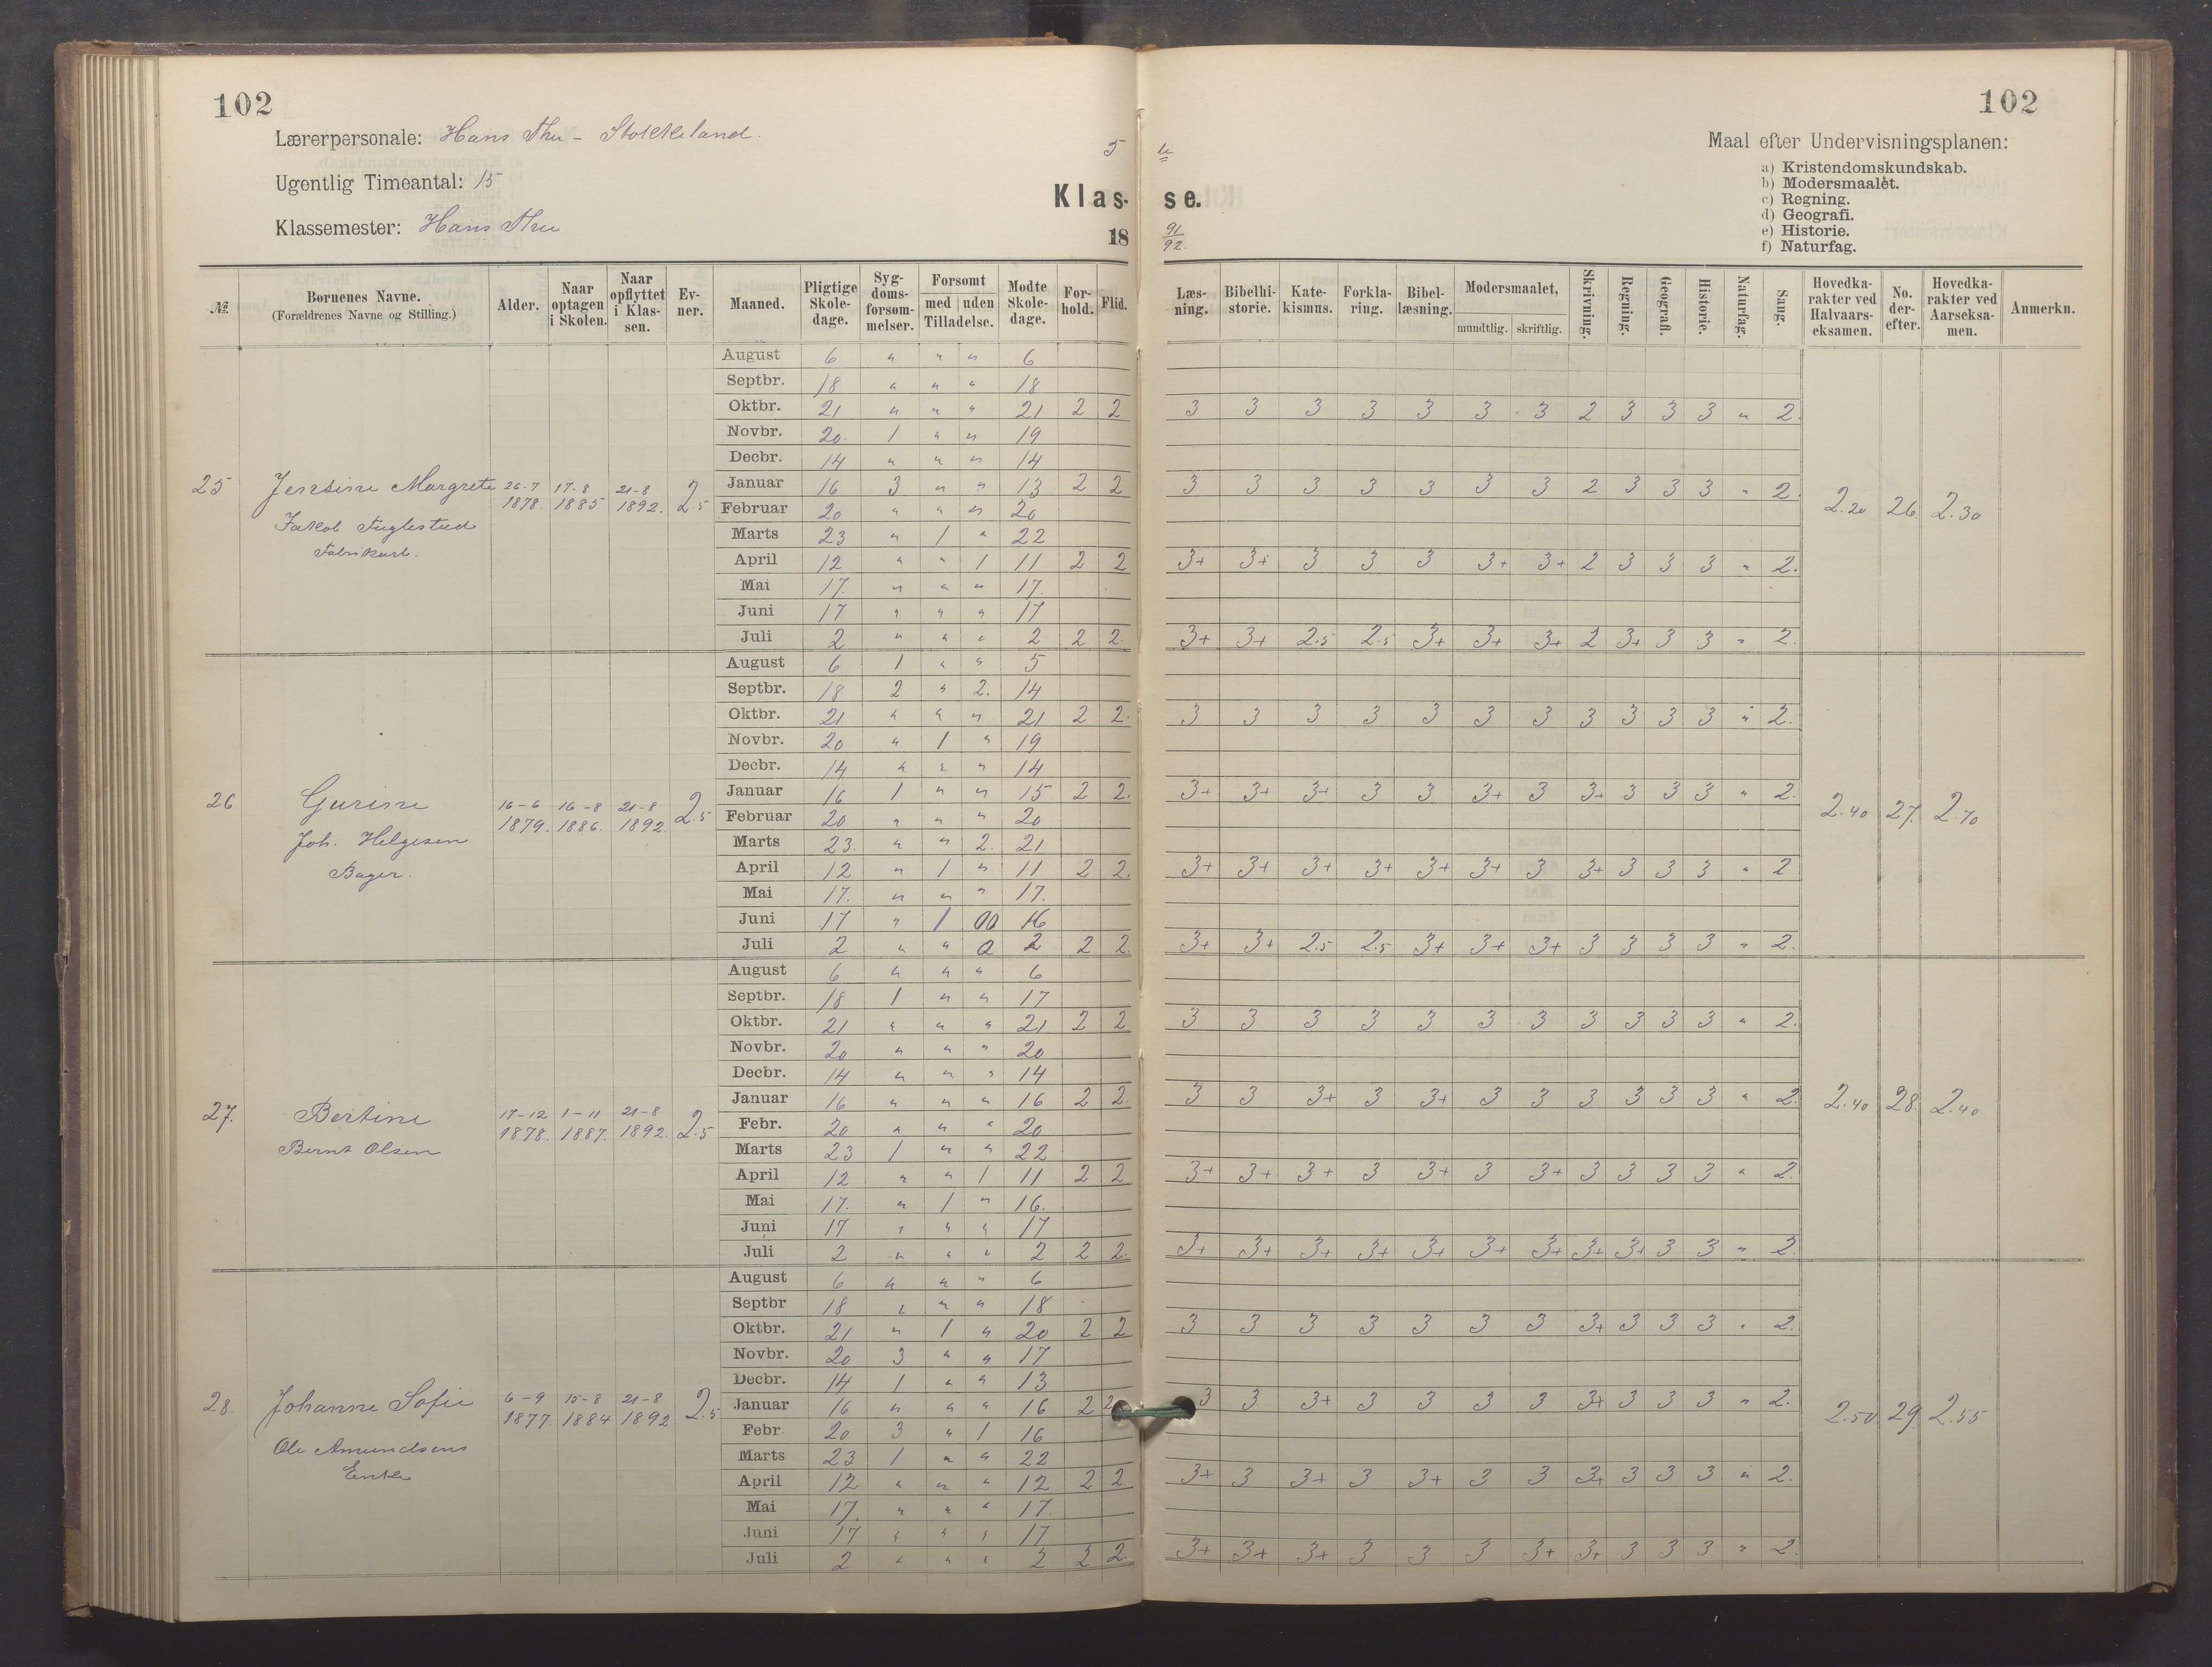 102
102
Lærerpersonale: Hans Thu - Stokkeland.
Ugentlig Timeantal: 15
Klassemester: Hans Thu
5 te
Klas- se.
18 91/92.
Maal efter Undervisningsplanen:
a) Kristendomskundskab.
b) Modersmaalet.
c) Regning.
d) Geografi.
e) Historie.
f) Naturfag.
№ | Børnenes Navne. (Forældrenes Navne og Stilling.) | Alder. | Naar optagen i Skolen. | Naar opflyttet i Klassen. | Evner. | Maaned. | Pligtige Skoledage. | Sygdomsforsømmelser. | Forsømt med Tilladelse. | uden Tilladelse. | Mødte Skoledage. | Forhold. | Flid. | Læsning. | Bibelhistorie. | Katekismus. | Forklaring. | Bibellæsning. | Modersmaalet, mundtlig. | skriftlig. | Skrivning. | Regning. | Geografi. | Historie. | Naturfag. | Sang. | Hovedkarakter ved Halvaarseksamen. | No. derefter. | Hovedkarakter ved Aarseksamen. | Anmerkn.
25 Jensine Margrete 26-7 1878. 17-8 1885 21-8 1892. 2.5
Jakob Fuglestad
Fabrikarb.
August 6 " " " 6
Septbr. 18 " " " 18
Oktbr. 21 " " " 21 2 2 3 3 3 3 3 3 3 2 3 3 3 " 2.
Novbr. 20. 1 " " 19
Decbr. 14 " " " 14
Januar 16 3 " " 13 2 2 3 3 3 3 3 3 3 2 3 3 3 " 2.
Februar 20 " " " 20
2.20 26. 2.30
Marts 23 " 1 " 22
April 12 " " 1 11 2 2 3+ 3+ 3 3 3 3+ 3+ 2 3 3 3 " 2.
Mai 17. " " " 17.
Juni 17 " " " 17
Juli 2 " " " 2 2 2. 3+ 3+ 2.5 2.5 3+ 3+ 3+ 2 3+ 3 3 " 2.
26. Gurine 16-6 1879. 16-8 1886. 21-8 1892. 2.5
Joh. Helgesen
Bager.
August 6 1 " " 5
Septbr. 18 2 " 2. 14
Oktbr. 21 " " " 21 2 2. 3 3 3 3 3 3 3 3 3 3 3 " 2.
Novbr. 20 " 1 " 19
Decbr. 14 " " " 14
Januar 16 1 " " 15 2 2. 3+ 3+ 3+ 3 3 3+ 3 3+ 3 3 3 " 2.
Februar 20 " " " 20
2.40 27. 2.70
Marts 23. " " 2. 21
April 12 " 1 " 11 2 2. 3+ 3+ 3+ 3+ 3+ 3+ 3 3+ 3 3 3 " 2
Mai 17. " " " 17.
Juni 17 " 1 16
Juli 2 " " 2 2 2. 3+ 3+ 2.5 2.5 3+ 3+ 3+ 3 3 3 3 " 2.
27. Bertine 17-12 1878. 1-11 1887. 21-8 1892. 2.5
Bernt Olsen
August 6 " " " 6
Septbr. 18 1 " " 17
Oktbr. 21 " " " 21 2 2 3 3 3 3 3 3 3 3 3 3 3 " 2.
Novbr. 20 " " " 20
Decbr. 14 " " " 14
Januar 16 " " " 16 2 2. 3 3 3+ 3 3+ 3 3 3 3 3 3 " 2.
2.40 28. 2.40
Febr. 20 " " " 20
Marts 23 1 " " 22
April 12 " " 1 11 2 2 3+ 3+ 3+ 3 3+ 3 3+ 3 3 3 3 " 2.
Mai 17. " 1 " 16.
Juni 17 " " " 17
Juli 2 " " " 2 2 2. 3+ 3+ 3+ 3+ 3+ 3+ 3+ 3+ 3+ 3 3 " 2.
28. Johanne Sofie 6-9 1877. 15-8 1884 21-8 1892. 2.5
Ole Amundsens
Enke
August 6 " " " 6
Septbr 18 " " " 18
Oktbr. 21 " 1 " 20 2 2 3 3 3 3 3 3 3 3+ 3 3 3 " 2.
Novbr. 20 3 " " 17
Decbr. 14 1 " " 13
Januar 16 " " " 16 2 2 3 3 3+ 3 3 3 3 3+ 3 3 3 " 2.
2.50 29. 2.55
Febr. 20 3 " 1 16
Marts 23 1 " " 22
April 12 " " " 12 2 2. 3+ 3 3+ 3 3+ 3 3 3+ 3 3 3 " 2.
Mai 17. " " " 17.
Juni 17 " " " 17
Juli 2 " " " 2 2 2. 3+ 3+ 3+ 3 3 3 3+ 3+ 3 3 3 " 2.